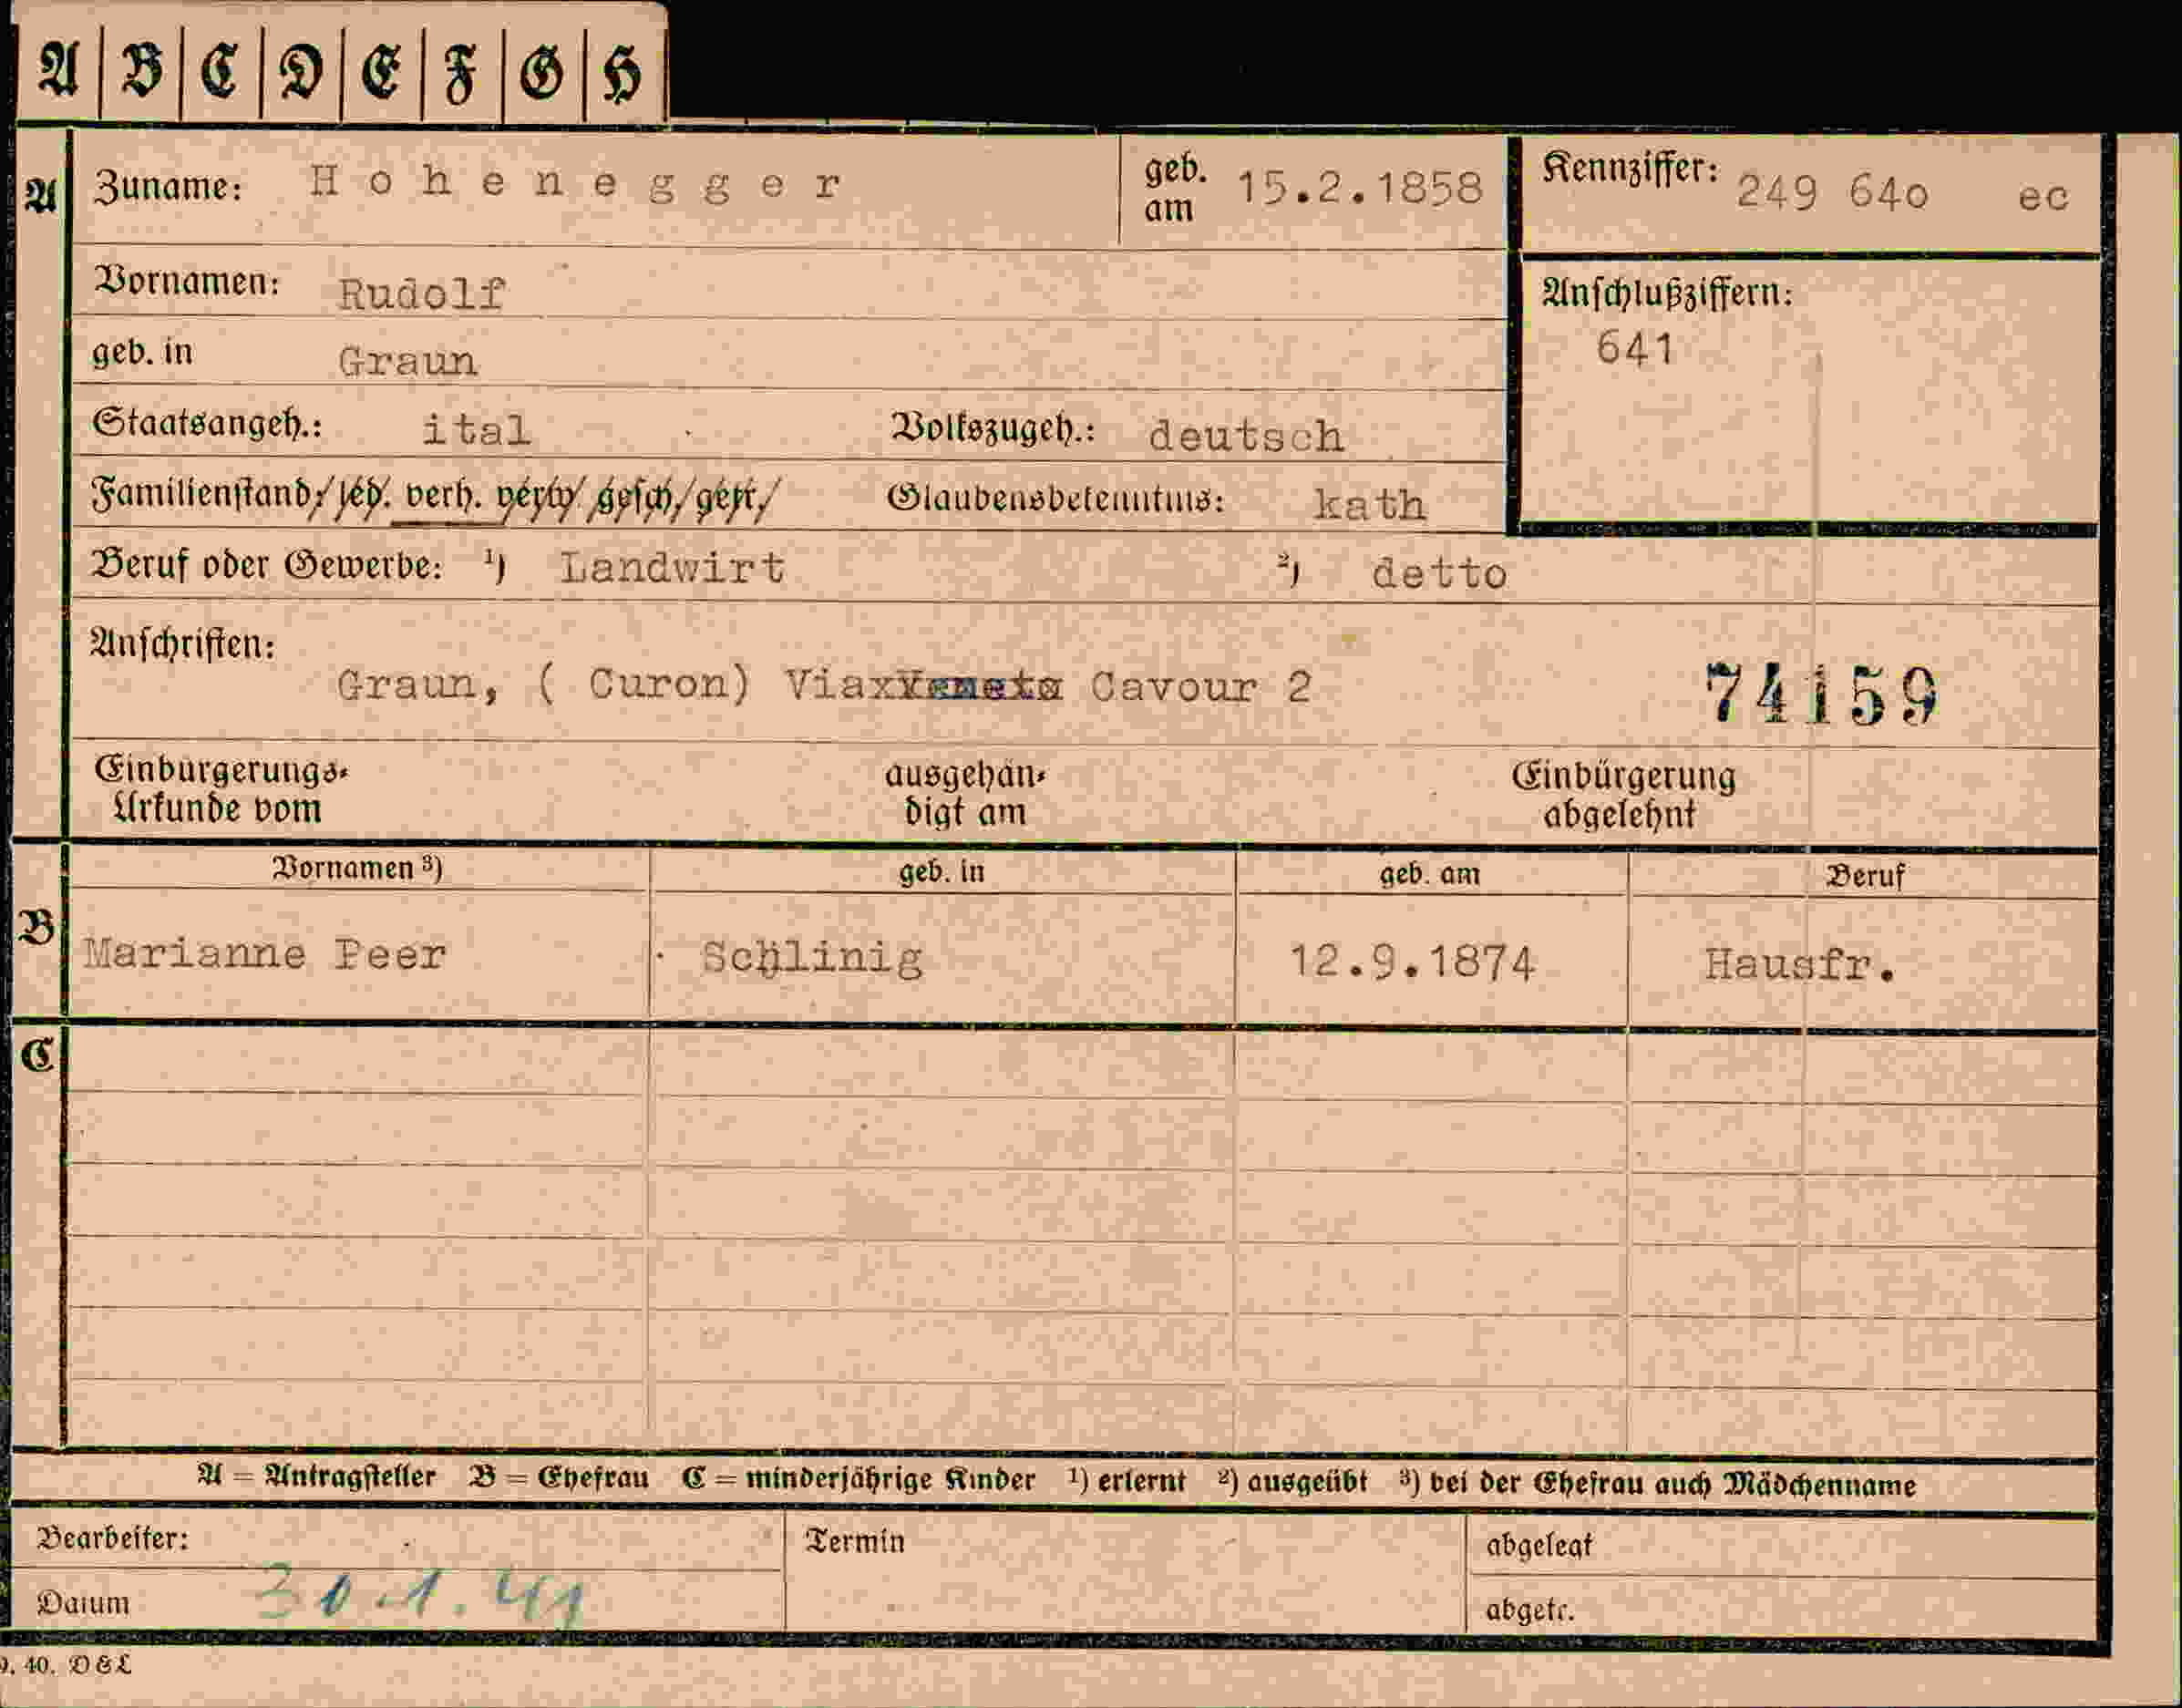 A B C D E F G H
A Zuname: Hohenegger geb. am 15.2.1858 Kennziffer: 249 64o ec
Vornamen: Rudolf
Anschlußziffern:
641
geb. in Graun
Staatsangeh.: ital Volkszugeh.: deutsch
Familienstand: led. verh. verw. gesch. getr. Glaubensbekenntnis: kath
Beruf oder Gewerbe: ¹) Landwirt ²) detto
Anschriften:
Graun, ( Curon) Via Cavour 2 74159
Einbürgerungs- ausgehän- Einbürgerung
Urkunde vom digt am abgelehnt
Vornamen ³) geb. in geb. am Beruf
B Marianne Peer Schlinig 12.9.1874 Hausfr.
C
A = Antragsteller B = Ehefrau C = minderjährige Kinder ¹) erlernt ²) ausgeübt ³) bei der Ehefrau auch Mädchenname
Bearbeiter: Termin abgelegt
Datum 30.1.41 abgetr.
40. D & L